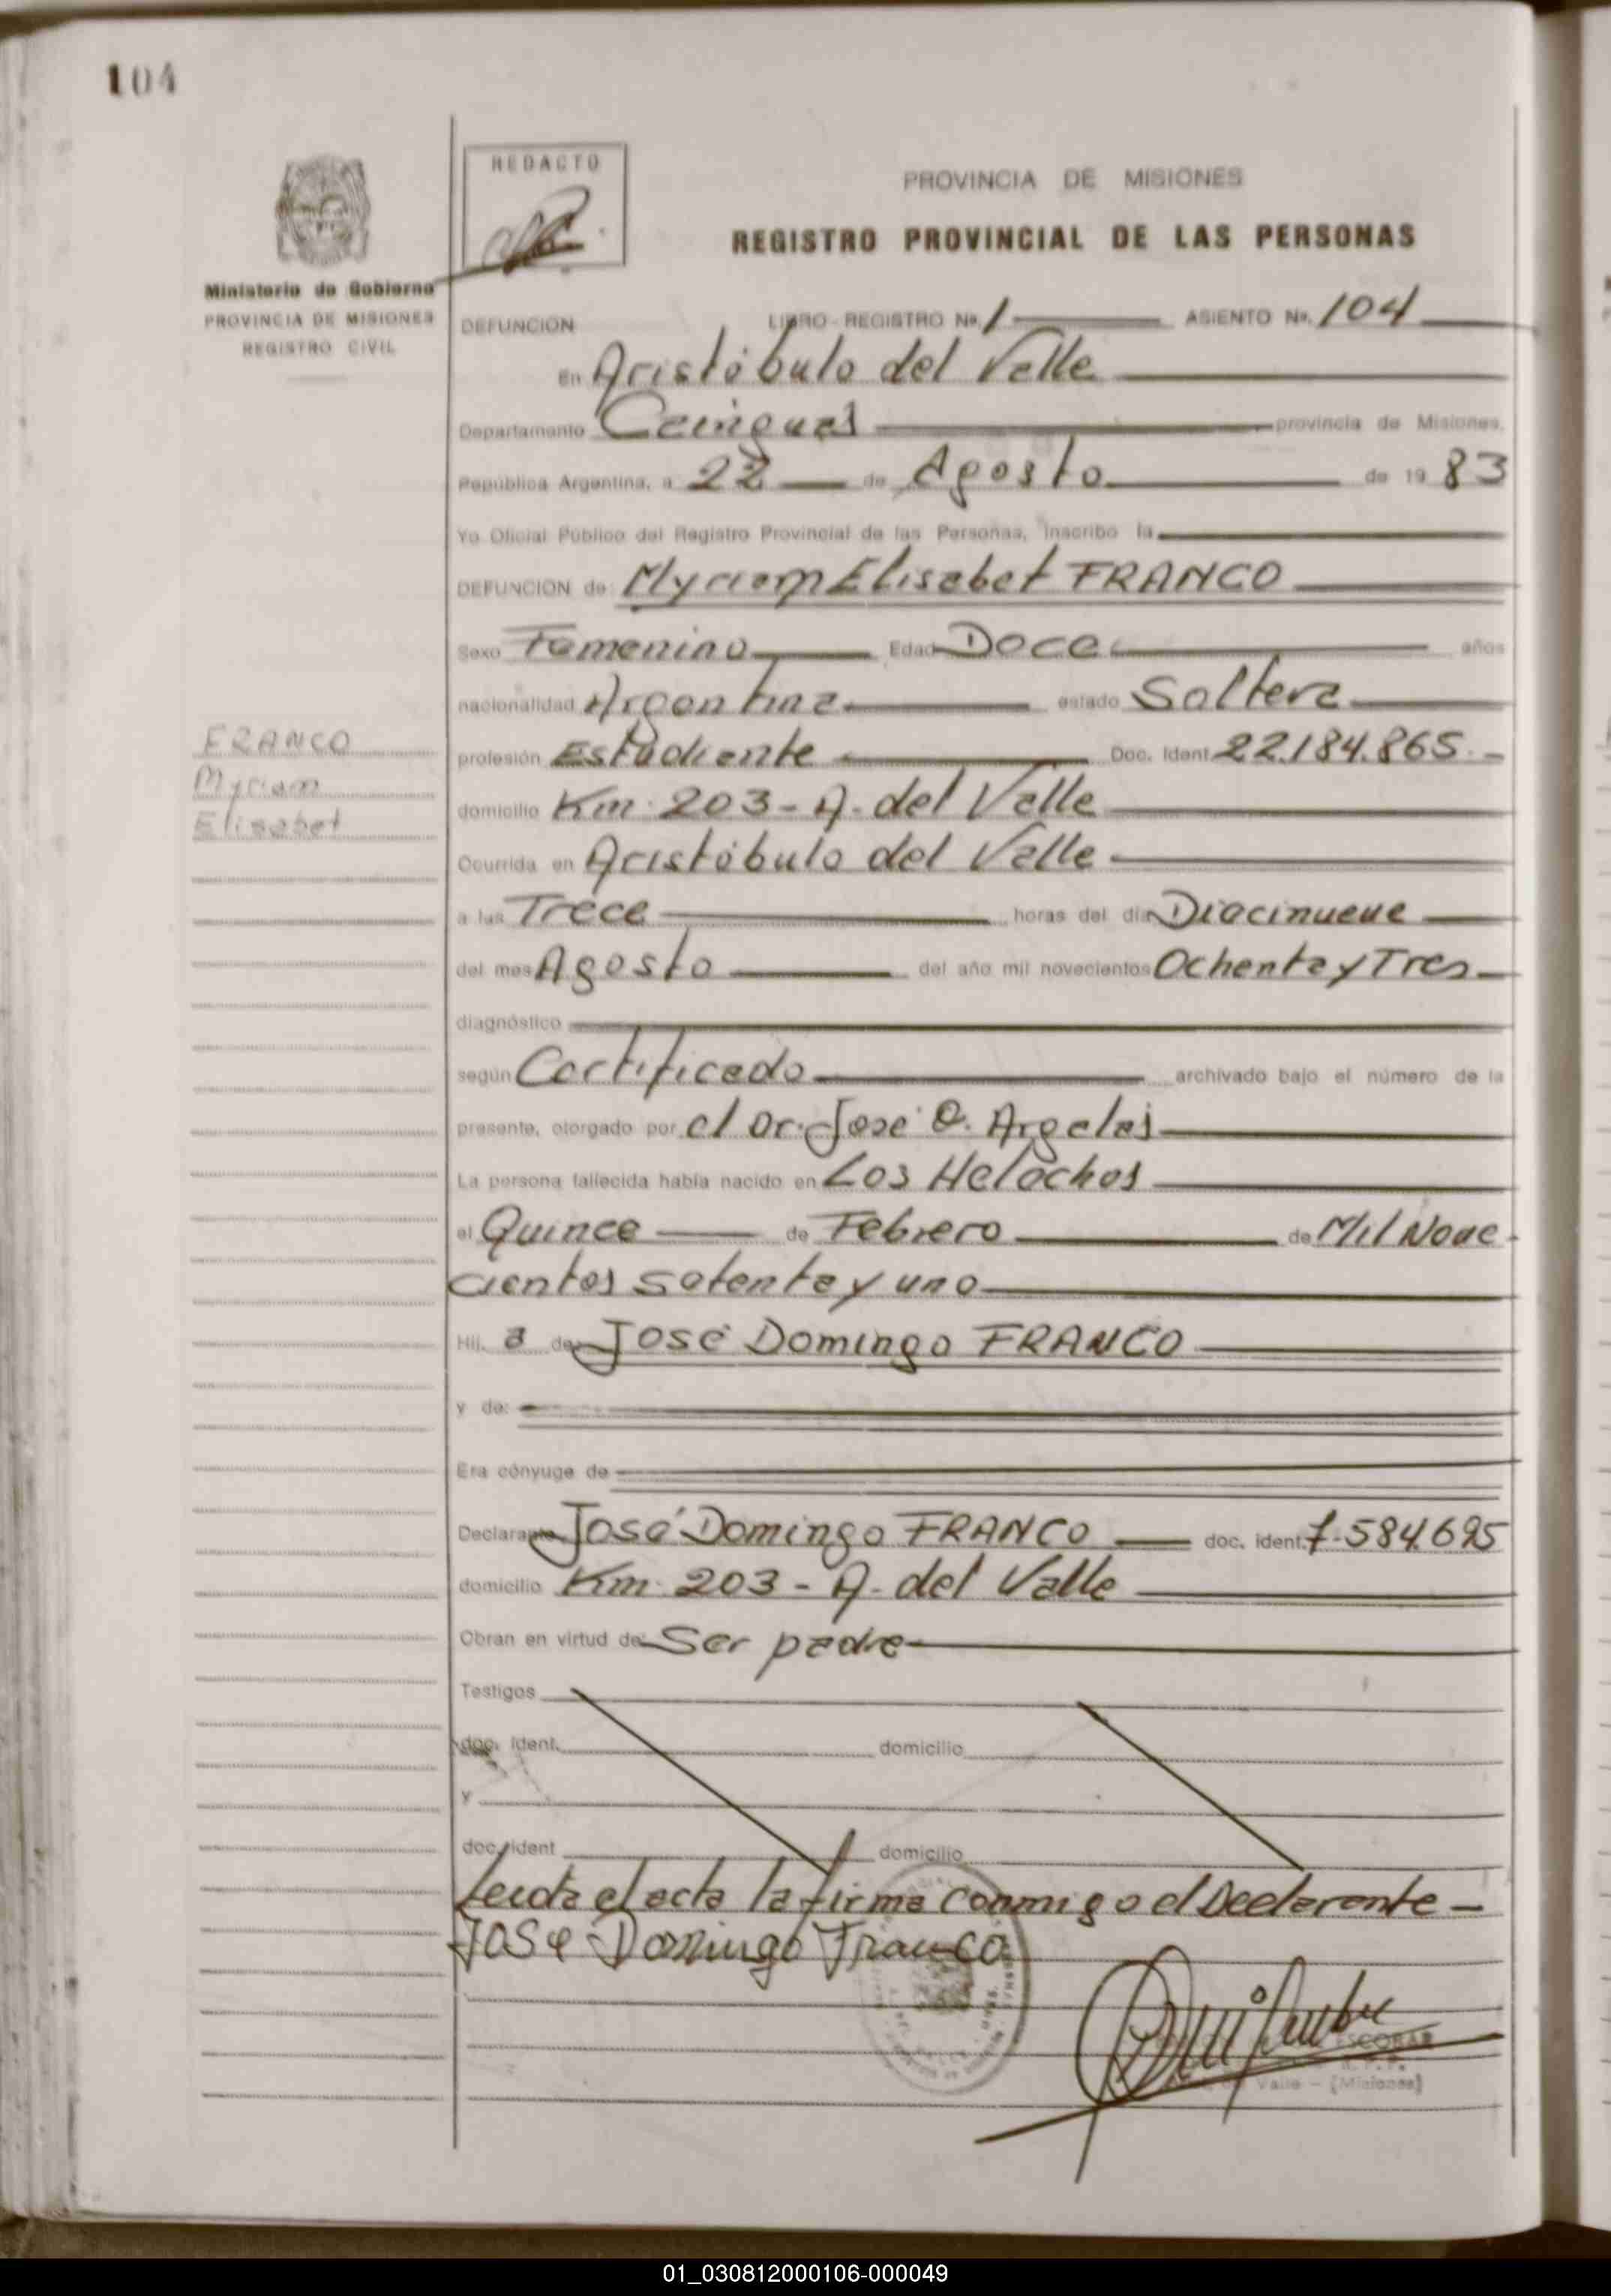 104
REDACTO
PROVINCIA DE MISIONES
REGISTRO PROVINCIAL DE LAS PERSONAS
Ministerio de Gobierno
PROVINCIA DE MISIONES
REGISTRO CIVIL
DEFUNCION LIBRO - REGISTRO Nº. 1 ASIENTO Nº. 104
En Aristóbulo del Valle
Departamento Cainguas provincia de Misiones,
República Argentina, a 22 de Agosto de 19 83
Yo Oficial Público del Registro Provincial de las Personas, inscribo la
DEFUNCION de: Myriam Elisabet FRANCO
Sexo Femenino Edad Doce años
nacionalidad Argentina estado Soltera
profesión Estudiante Doc. Ident. 22.184.865.-
domicilio Km. 203 - A. del Valle
FRANCO
Myriam
Elisabet
Ocurrida en Aristóbulo del Valle
a las Trece horas del día Diecinueve
del mes Agosto del año mil novecientos Ochenta y Tres
diagnóstico
según Certificado archivado bajo el número de la
presente, otorgado por el Dr. José O.
La persona fallecida había nacido en Los Helechos
el Quince de Febrero de Mil Nove
cientos setenta y uno
Hij. a de José Domingo FRANCO
y de:
Era cónyuge de
Declarante José Domingo FRANCO doc. ident. 7.584.695
domicilio Km. 203 - A. del Valle
Obran en virtud de: Ser padre
Testigos
doc. ident. domicilio
y
doc. ident domicilio
Leida el acta la firma conmigo el Declarante -
Jose Domingo Franco
ESCOBAR
Valle - (Misiones)
01_030812000106-000049